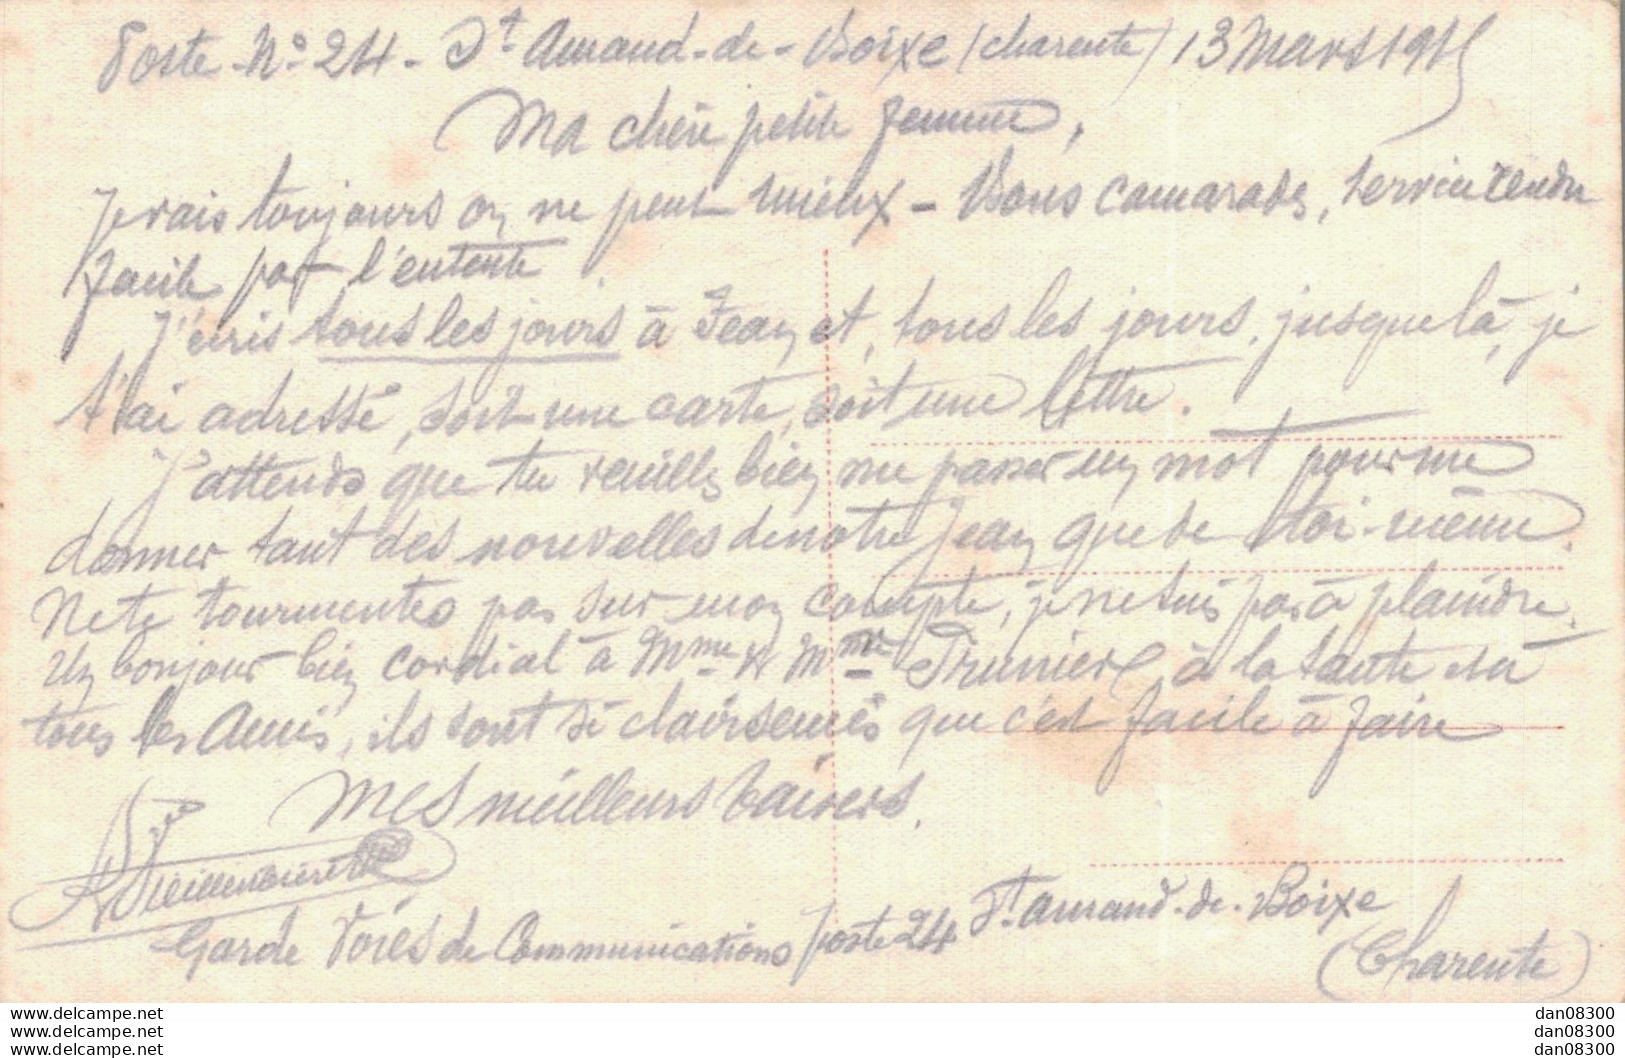 Poste N° 24 - St Amand-de-Boixe (Charente) 13 Mars 1915
Ma chère petite femme,
Je vais toujours on ne peut mieux - Bons camarades, service rendu
facile par l'entente
J'écris tous les jours à Jean et, tous les jours, jusque là, je
t'ai adressé, soit une carte, soit une lettre.
J'attends que tu veuilles bien me passer un mot pour me
donner tant des nouvelles de notre Jean que de toi-même.
Ne te tourmentes pas sur mon compte, je ne suis pas à plaindre.
Un bonjour bien cordial à Mme & Mr Prunier, à la tante et à
tous les Amis, ils sont si clairsemés que c'est facile à faire
Mes meilleurs baisers.
Garde Voies de Communications poste 24 St Amand-de-Boixe
(Charente)
dan08300
dan08300
dan08300
www.delcampe.net
www.delcampe.net
www.delcampe.net